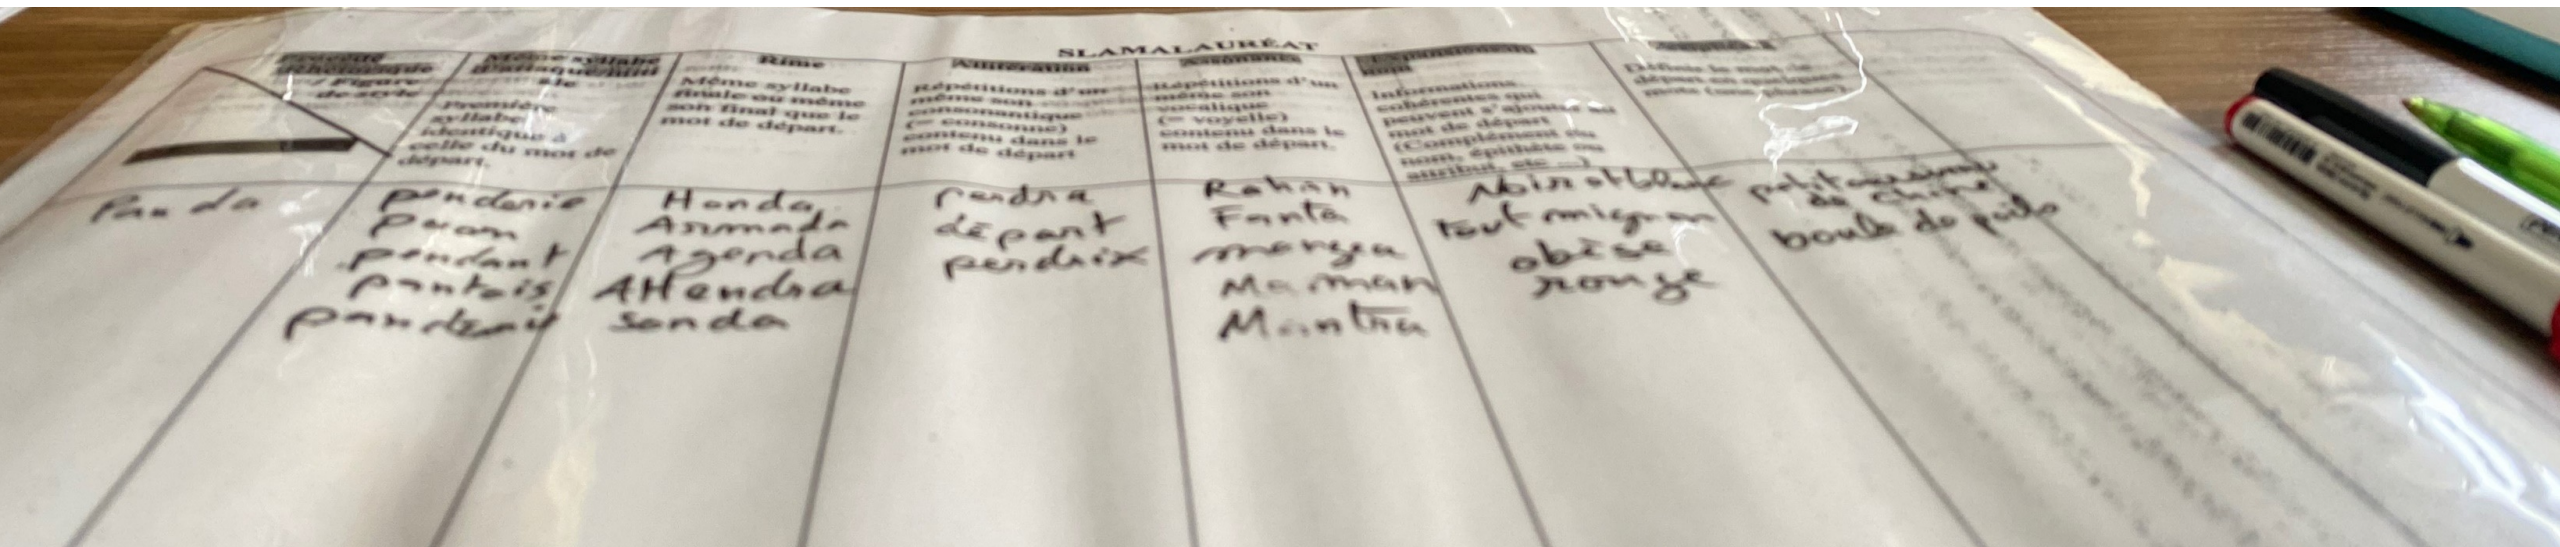 SLAMALAURÉAT
Procédé
rhétorique
/ Figure
de style
Même syllabe
d'attaque/initi
ale
Première
syllabe
identique à
celle du mot de
départ.
Rime
Même syllabe
finale ou même
son final que le
mot de départ.
Allitération
Répétitions d'un
même son
consonantique
(= consonne)
contenu dans le
mot de départ
Assonance
Répétitions d'un
même son
vocalique
(= voyelle)
contenu dans le
mot de départ.
Informations
cohérentes qui
peuvent s'ajouter au
mot de départ
(Complément du
nom, épithète ou
attribut, etc ...)
Définir le mot de
départ en quelques
mots (une phrase).
Panda
penderie
paon
pendant
pantois
Honda
Armada
Agenda
Attendra
Sonda
perdra
départ
perdrix
Rohan
Fanta
mangea
Maman
Mantra
Noir et blanc
tout mignon
obèse
rouge
petit
de Chine
boule de poils